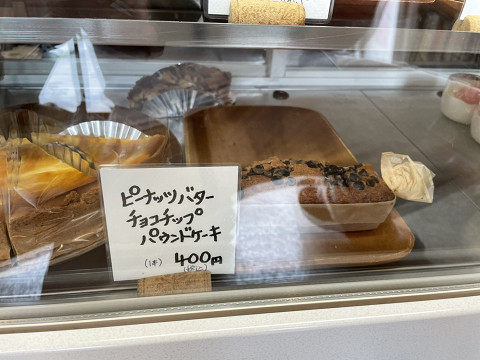 ピーナッツバター
チョコチップ
パウンドケーキ
(1本) 400円
(税込)